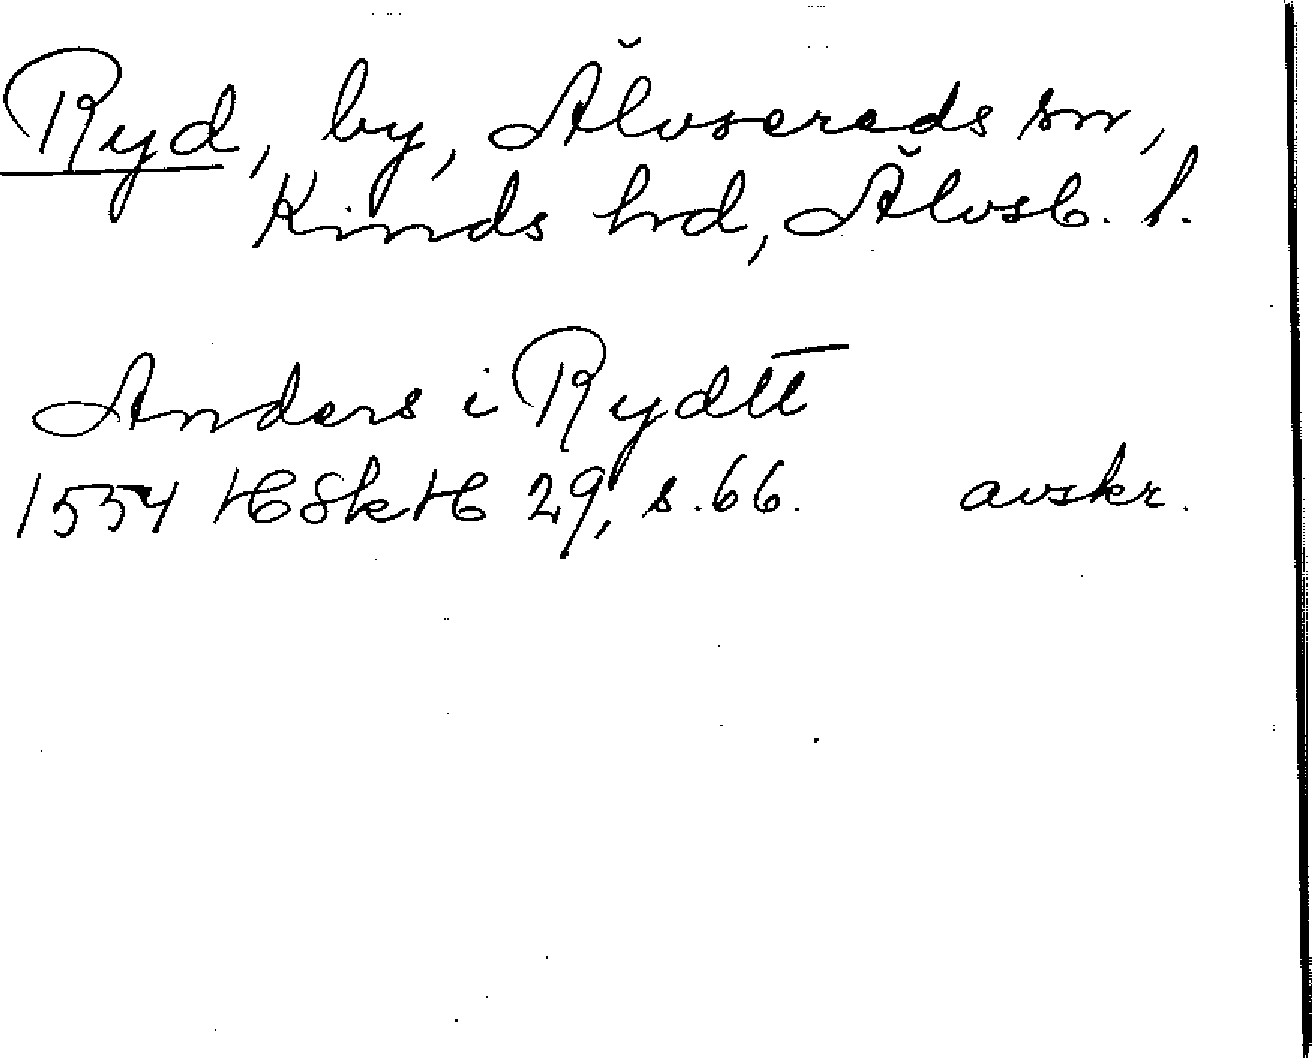 Ryd, by, Älvsereds sn,
Kinds hd, Älvsb. l.
Anders i Rydtt
1554 HSkH 29, s. 66. avskr.